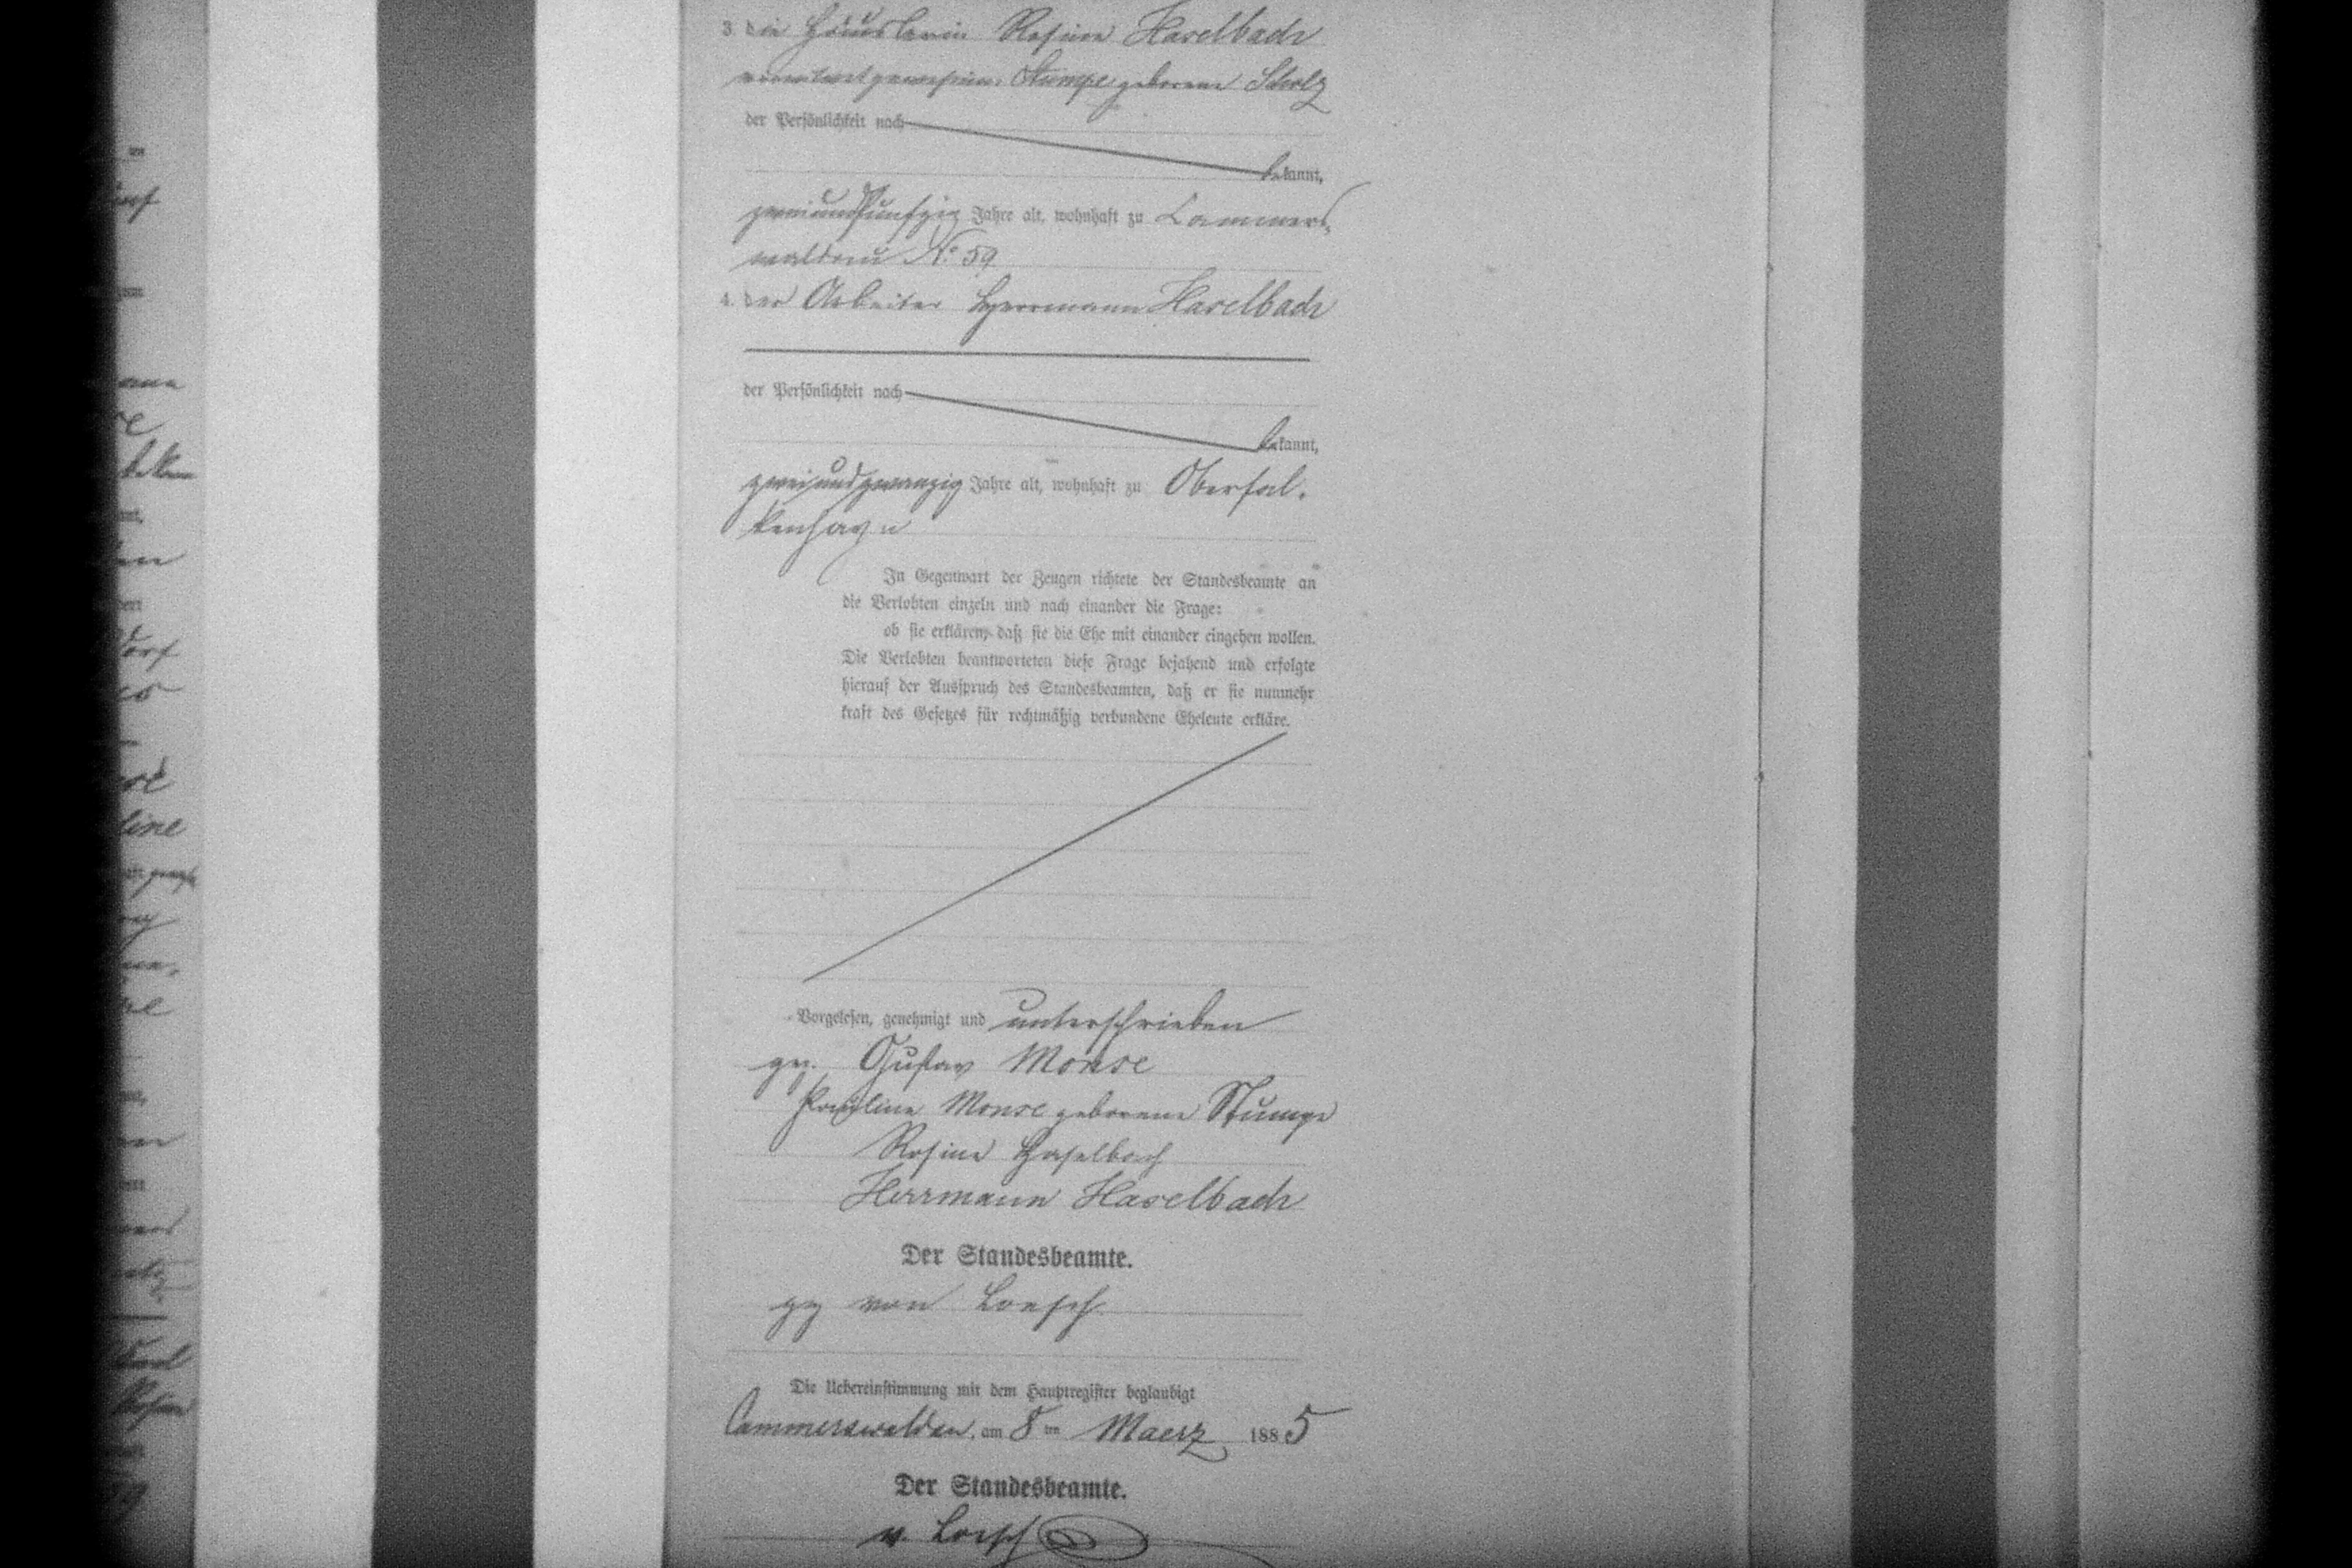 3. die Häuslerin Rosine Haselbach
verwitwet gewesene Stumpe geborene Scholz
der Persönlichkeit nach
bekannt,
zweiundfünfzig Jahre alt, wohnhaft zu Cammers-
waldau No 59
4. der Arbeiter Herrmann Haselbach
der Persönlichkeit nach
bekannt,
zweiundzwanzig Jahre alt, wohnhaft zu Oberfal-
kenhayn
In Gegenwart der Zeugen richtete der Standesbeamte an
die Verlobten einzeln und nach einander die Frage:
ob sie erklären, daß sie die Ehe mit einander eingehen wollen.
Die Verlobten beantworteten diese Frage bejahend und erfolgte
hierauf der Ausspruch des Standesbeamten, daß er sie nunmehr
kraft des Gesetzes für rechtmäßig verbundene Eheleute erkläre.
Vorgelesen, genehmigt und unterschrieben
gez. Gustav Monse
Pauline Monse geborene Stumpe
Rosine Haselbach
Herrmann Haselbach
Der Standesbeamte.
gez von Loesch
Die Uebereinstimmung mit dem Hauptregister beglaubigt
Cammerswaldau, am 8ten Maerz 1885
Der Standesbeamte.
v. Loesch